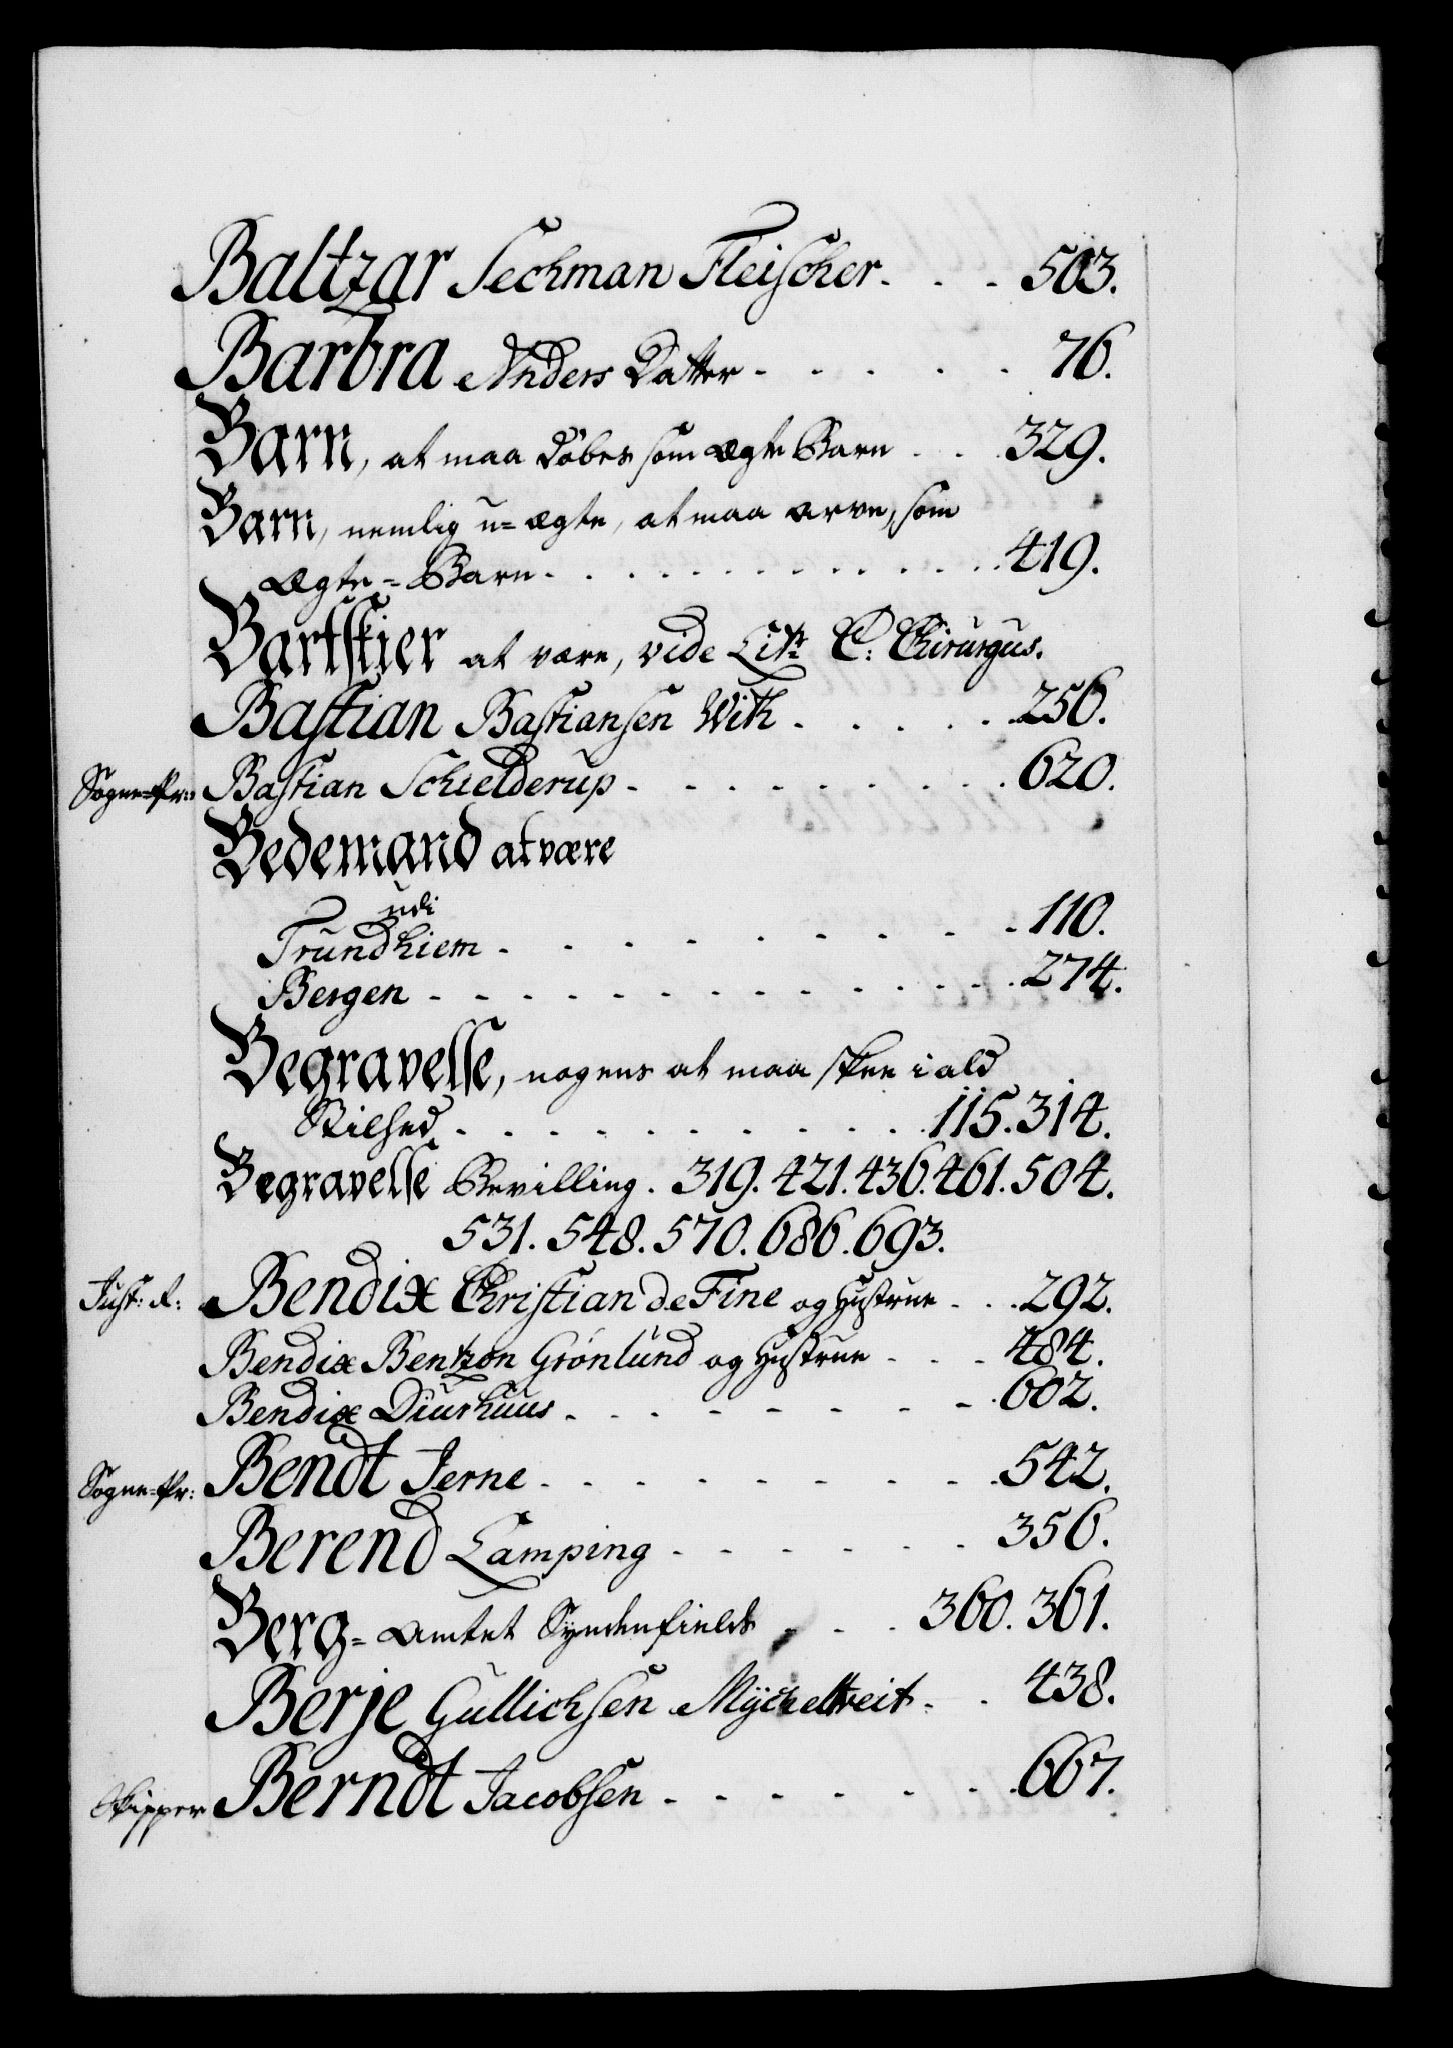 Baltzar Sechman Fleischer. . . 503.
Barbra Anders Datter - - - - - 76.
Barn, at maa døbes som ægte Barn . . . 329.
Barn, nemlig u=ægte, at maa arve, som
Ægte=Barn. . . . . . . . . . . . 419.
Bartskier at være, vide Litr C: Chirurgus.
Bastian Bastiansen With . . . . . 256.
Sogne=Pr: Bastian Schielderup - - - - - - - 620.
Bedemand at være
udi
Trundhiem - - - - - - - - 110.
Bergen - - - - - - - - - - - 274.
Begravelse, nogens at maa skee i ald
Stilhed . . . . . . . . . . . 115. 314.
Begravelse Bevilling. 319. 421. 436. 461. 504.
531. 548. 570. 686. 693.
Just: R: Bendix Christian de Fine og Hustrue . . . 292.
Bendix Bentzon Grønlund og Hustrue - - - 484.
Bendix Diurhuus - - - - - - - 602.
Sogne=Pr: Bendt Jerne - - - - - - - - 542.
Berend Lamping - - - - - - 356.
Berg=Amtet Syndenfields . . . 360. 361.
Berje Gullichsen Myckeltveit - . 438.
Skipper Berndt Jacobsen - - - - - - 667.